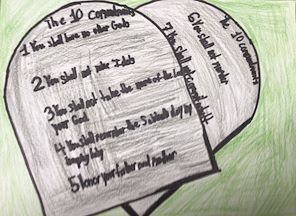 The 10 Commandments
1 You shall have no other Gods
2 You shall not make Idols
3 You shall not take the name of the Lord
your God
4 You shall remember the Sabbath day by
keeping holy
5 Honor your father and mother
The 10 commandments
6 You shall not murder
7 You shall not commit